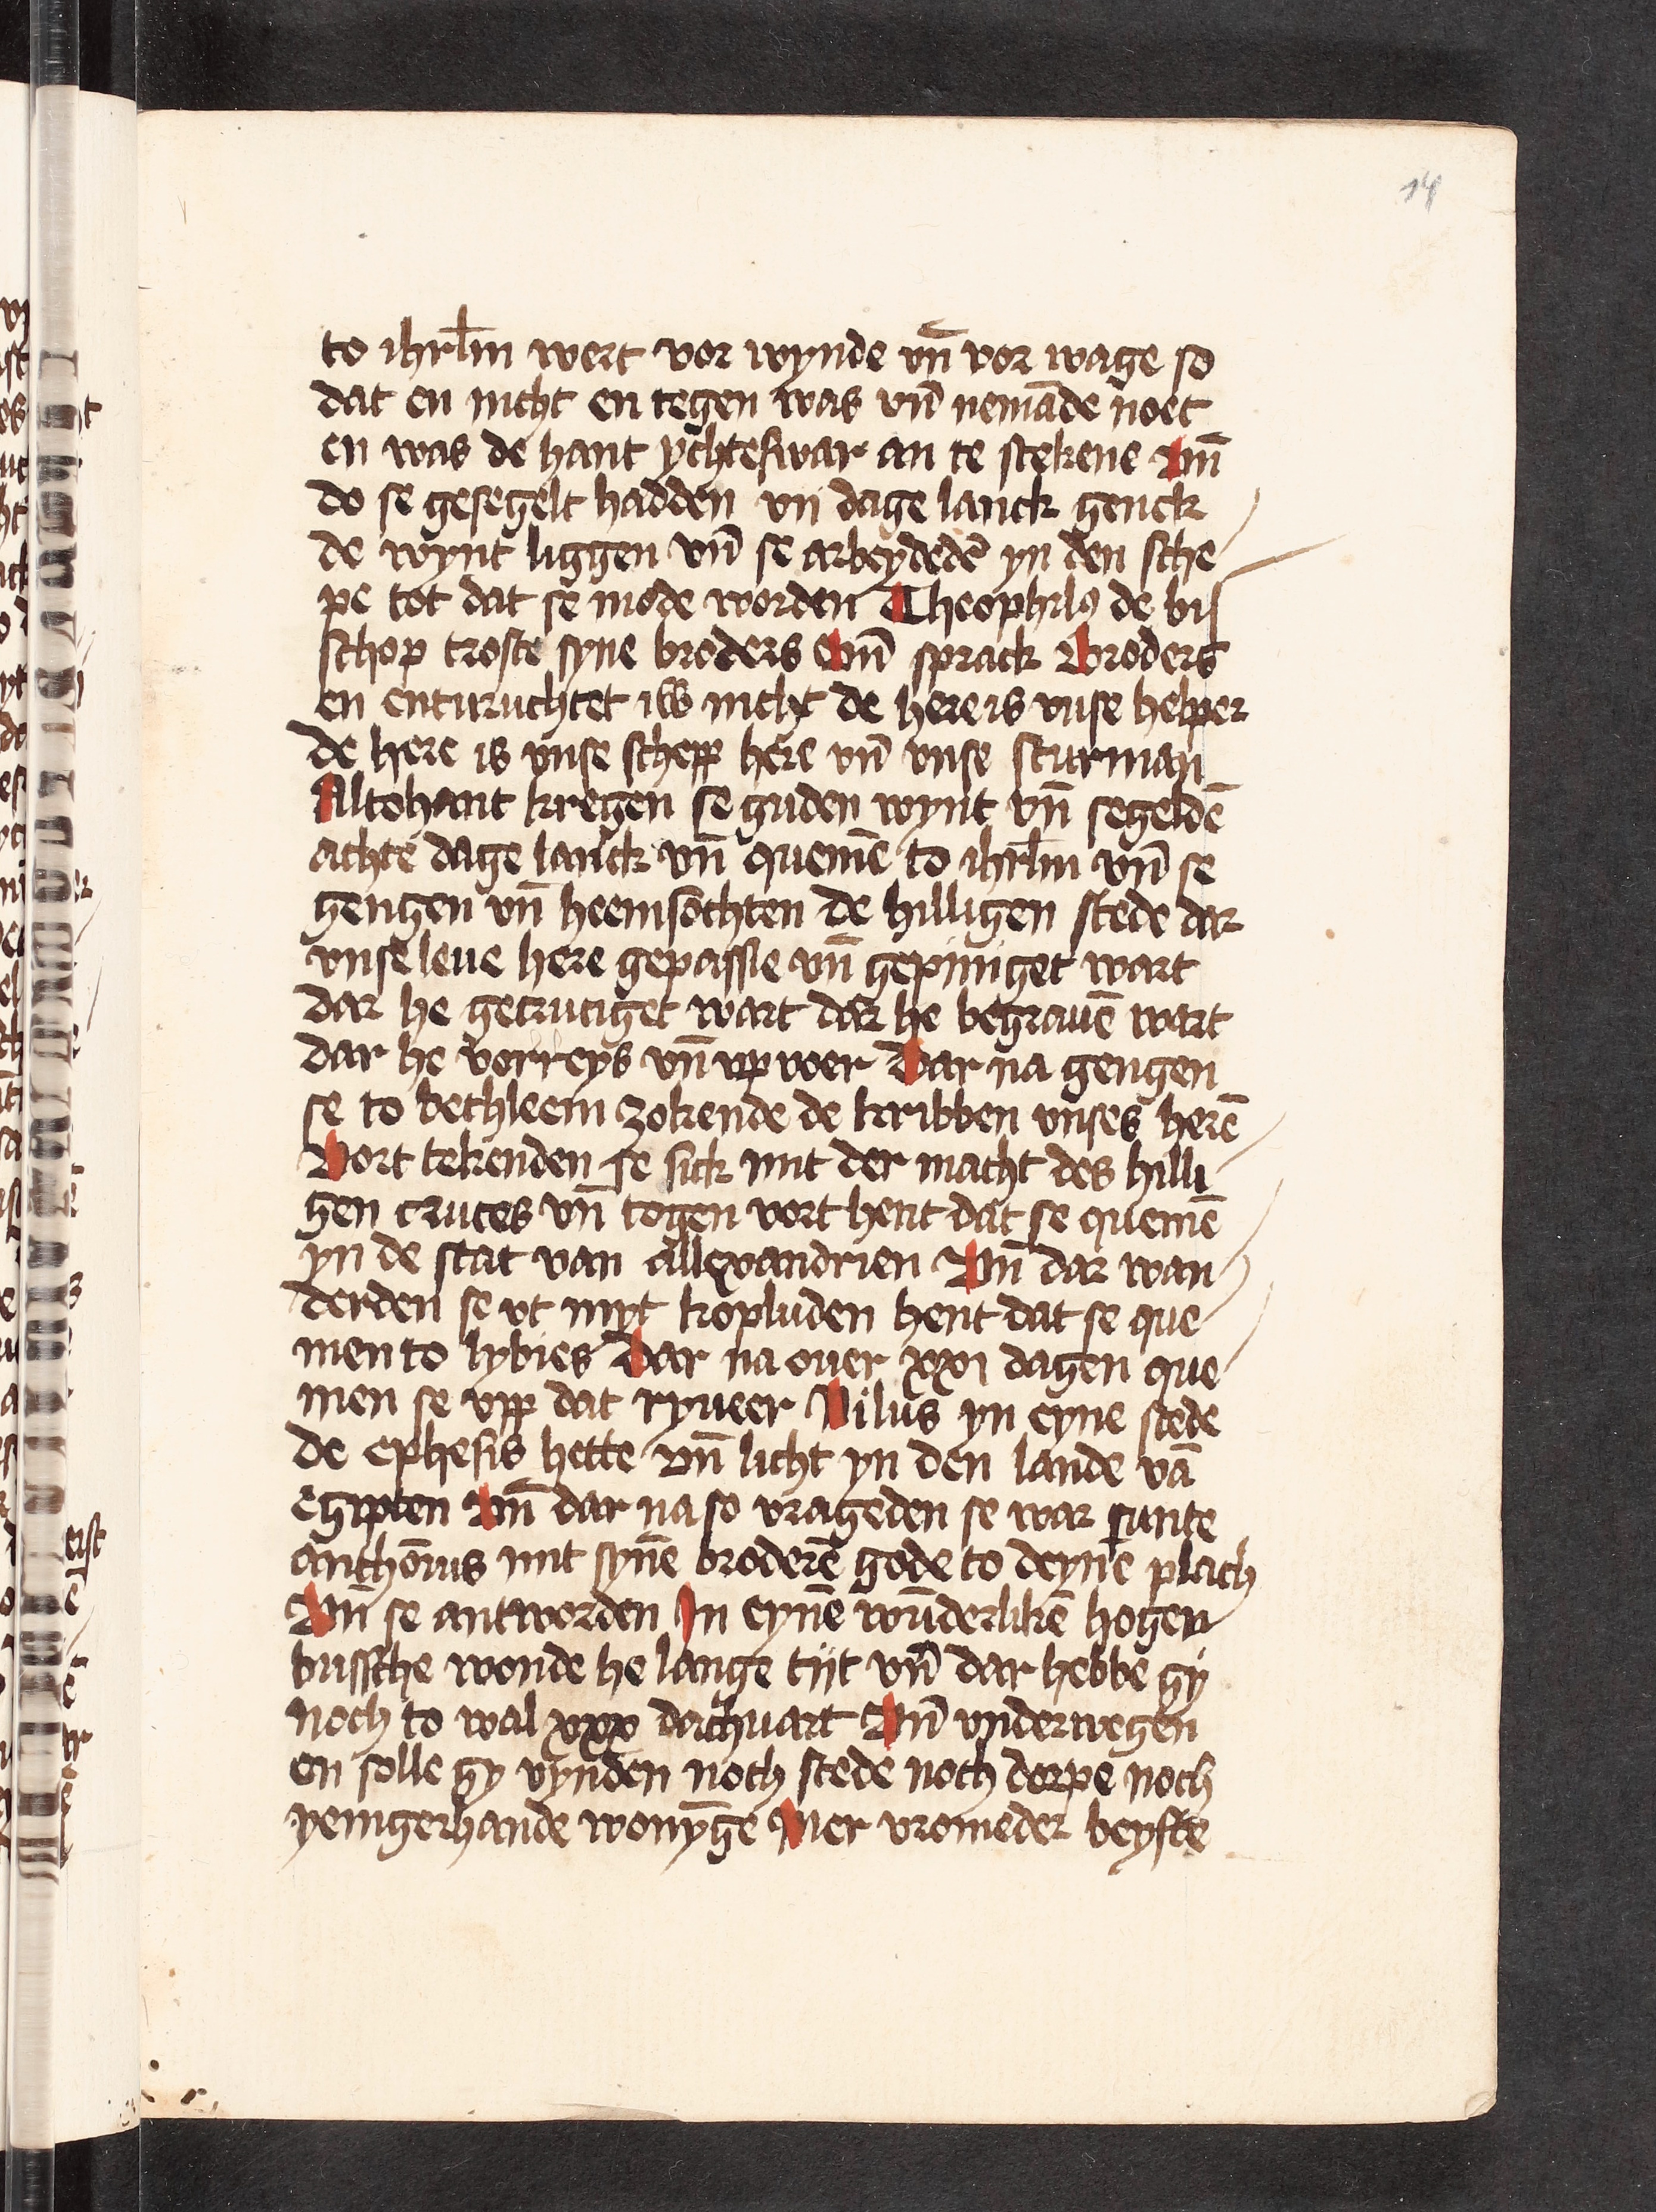 14
to ihrl̄m wert vor wynde vn̄ vor wage so
dat en nicht en tegen was vn̄ nemāde noet
en was de hant ychteswar an te stekene Vn̄
do se gesegelt hadden vij dage lanck genck
de wynt liggen vn̄ se arbeydedē yn den sche
pe tot dat se mode worden Theophilꝰ de bis
schop troste syne broders Vn̄ sprack Broders
en entvruchtet iw nicht de here is vnse helper
de here is vnse schepp here vn̄ vnse sturman
Altohant kregen se guden wynt vn̄ segeldē
achte dage lanck vn̄ quemē to ihrl̄m vn̄ se
gengen vn̄ heemsochten de hilligen stede dar
vnse leue here gepassie vn̄ gepiniget wart
dar he gecruciget wart dar he begrauē wart
dar he vorreys vn̄ vpp voer Dar na gengen
se to bethleem zokende de kribben vnses herē
Vort tekenden se sick mit der macht des hilli
gen cruces vn̄ togen vort hent dat se quemē
yn de stat van allexandrien Vn̄ dar wan
derden se vt myt kopluden hent dat se que
men to lybies Dar na ouer xxi dagen que
men se vpp dat ryueer Nilus yn eyne stede
de ephesis hette vn̄ licht yn den lande vā
Egipten Vn̄ dar na so vrageden se war sunte
anthōius mit synē broderē gode to deynē plach
Vn̄ se antworden In eynē wūderlikē hogen
bussche wonde he lange tijt vn̄ dar hebbe gy
noch to wal xxx dachuart Vn̄ vnderwegen
en solle gy vynden noch stede noch dorpe noch
yenigerhande wonȳge Mer vromeder beyste